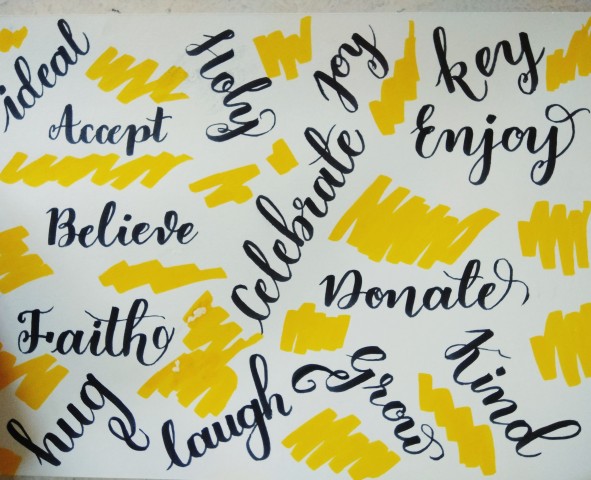 ideal
Holy
Joy
key
Accept
Enjoy
Believe
Celebrate
Donate
Faith
Kind
hug
laugh
Grow